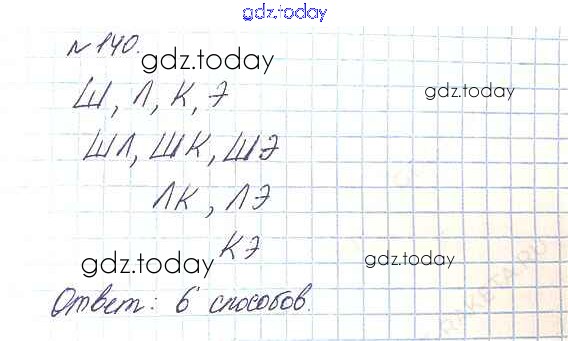 gdz.today
№140.
gdz.today
Ш, Л, К, Э
gdz.today
ШЛ, ШК, ШЭ
ЛК, ЛЭ
КЭ
gdz.today
gdz.today
Ответ: 6 способов.